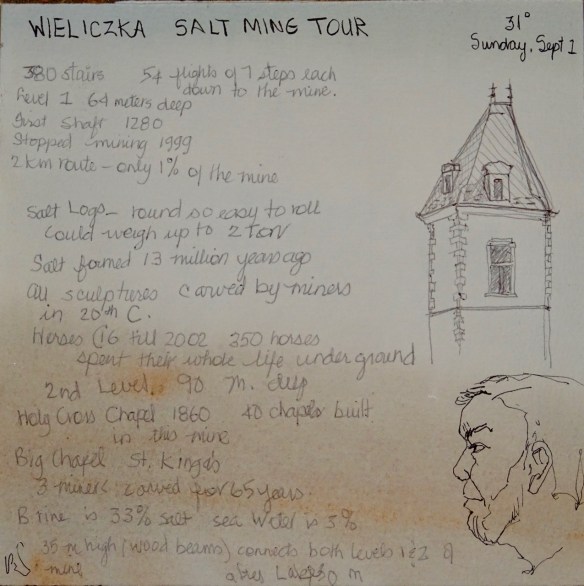 WIELICZKA SALT MINE TOUR
31°
Sunday, Sept 1
380 stairs 54 flights of 7 steps each
down to the mine.
Level 1 64 meters deep
First Shaft 1280
Stopped mining 1999
2 km route - only 1% of the mine
Salt Logs - round so easy to roll
could weigh up to 2 ton
Salt formed 13 million years ago
All sculptures carved by miners
in 20th C.
Horses C16 till 2002 350 horses
spent their whole life under ground
2nd Level. 90 m. deep
Holy Cross Chapel 1860 40 chapels built
in this mine
Big Chapel St. Kinga's
3 miners carved for 65 years.
Brine is 33% salt sea water is 3%
35 m high (wood beams) connects both levels 1 & 2 of
mine